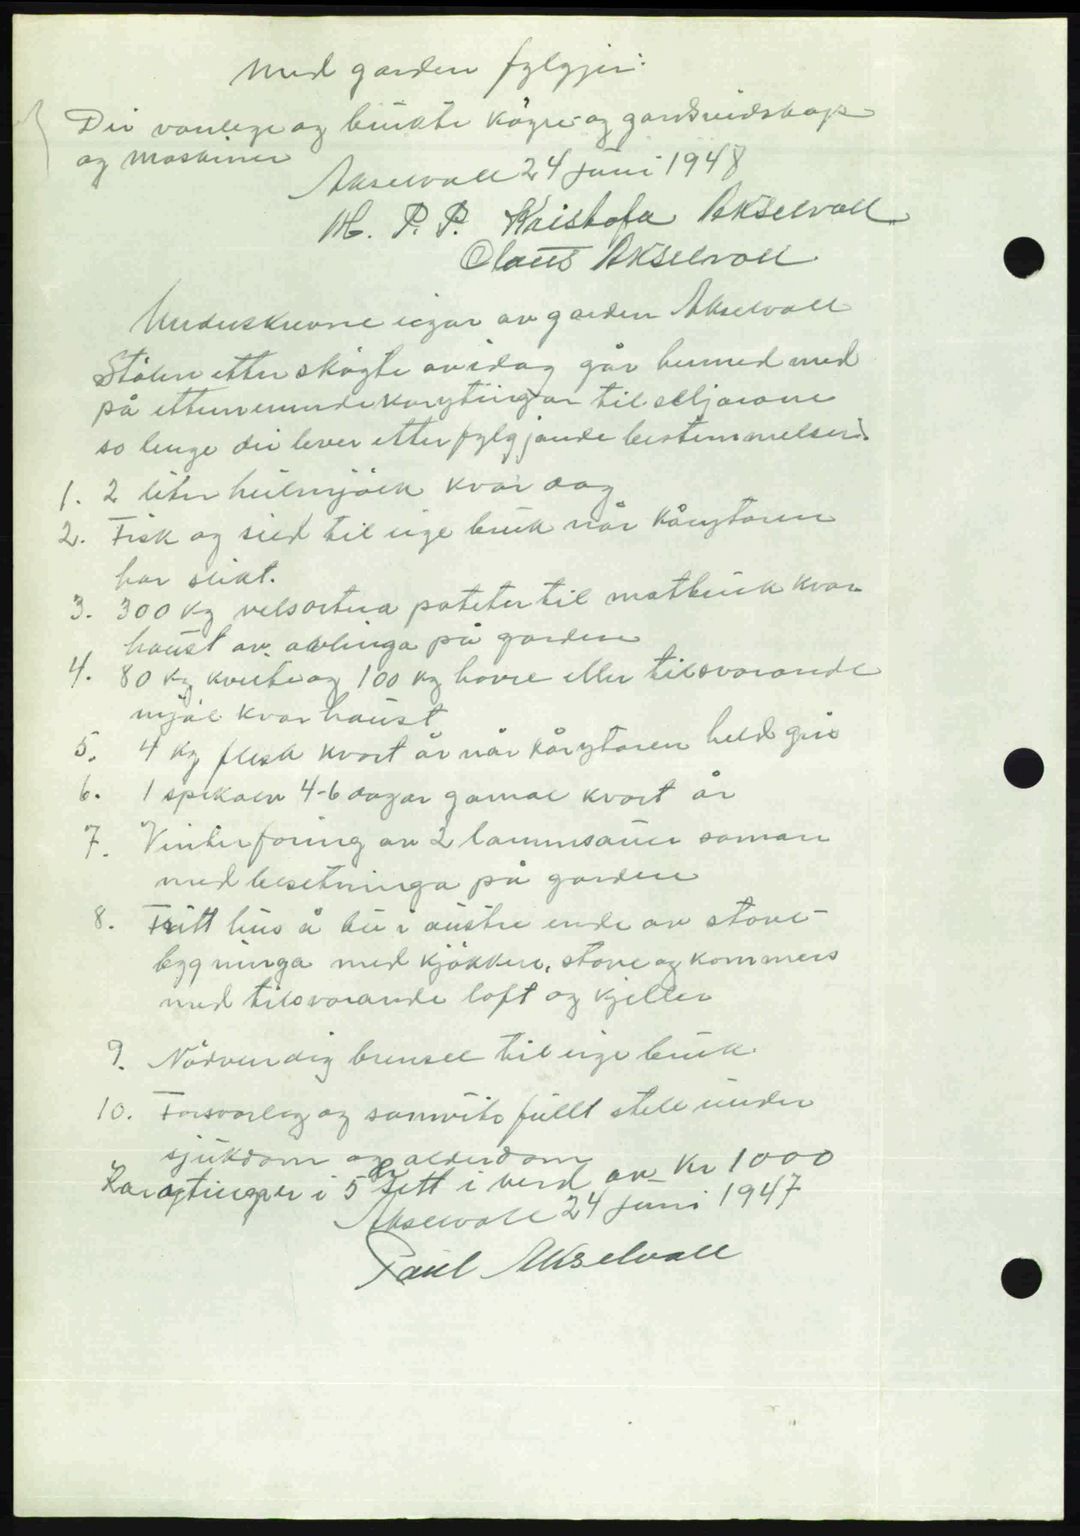 Med garden fylgjer:
Dei vanlege og brukte køyre og gardsreidskap
og maskiner
Akselvoll 24 juni 1948
M. P. P. Kristofa Akselvoll
Claus Akselvoll
Underskrevne eigar av garden Akselvoll
Stølen etter skøyte av idag går hermed med
på etternemnde kårytingar til seljarane
so lenge dei lever etter fylgjande bestemmelser.
1. 2 liter heilmjølk kvar dag
2. Fisk og sild til eige bruk når kårytaren
har slikt.
3. 300 kg velsortera poteter til matbruk kvar
haust av avlinga på garden
4. 80 kg kveite og 100 kg havre eller tilsvarande
mjøl kvar haust
5. 4 kg flesk kvart år når kårytaren held gris
6. 1 spekalv 4-6 dagar gamal kvart år
7. Vinterforing av 2 lammsauer saman
med besetninga på garden
8. Fritt hus å bu i austre ende av stove-
bygninga med kjøkken, stove og kommers
med tilsvarande loft og kjeller
9. Nødvendig brensel til eige bruk
10. Forsvarleg og samvitsfullt stell under
sjukdom og alderdom
Kårytingar i 5 år sett i verd av Kr 1000
Akselvoll 24 juni 1947
Paul Akselvoll